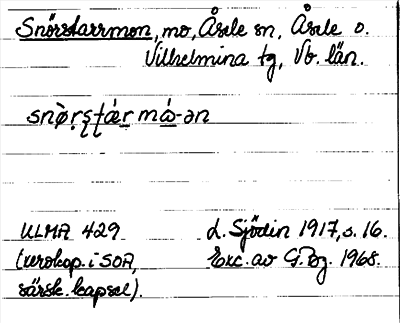 Snörstarrmon, mo, Åsele sn, Åsele o.
Vilhelmina tg, Vb. län.
snø̀rstár má-ən
ULMA 429 L. Sjödin 1917, s. 16.
(xerokop. i SOA, Exc. av G. Pg. 1968.
särsk. kapsel).